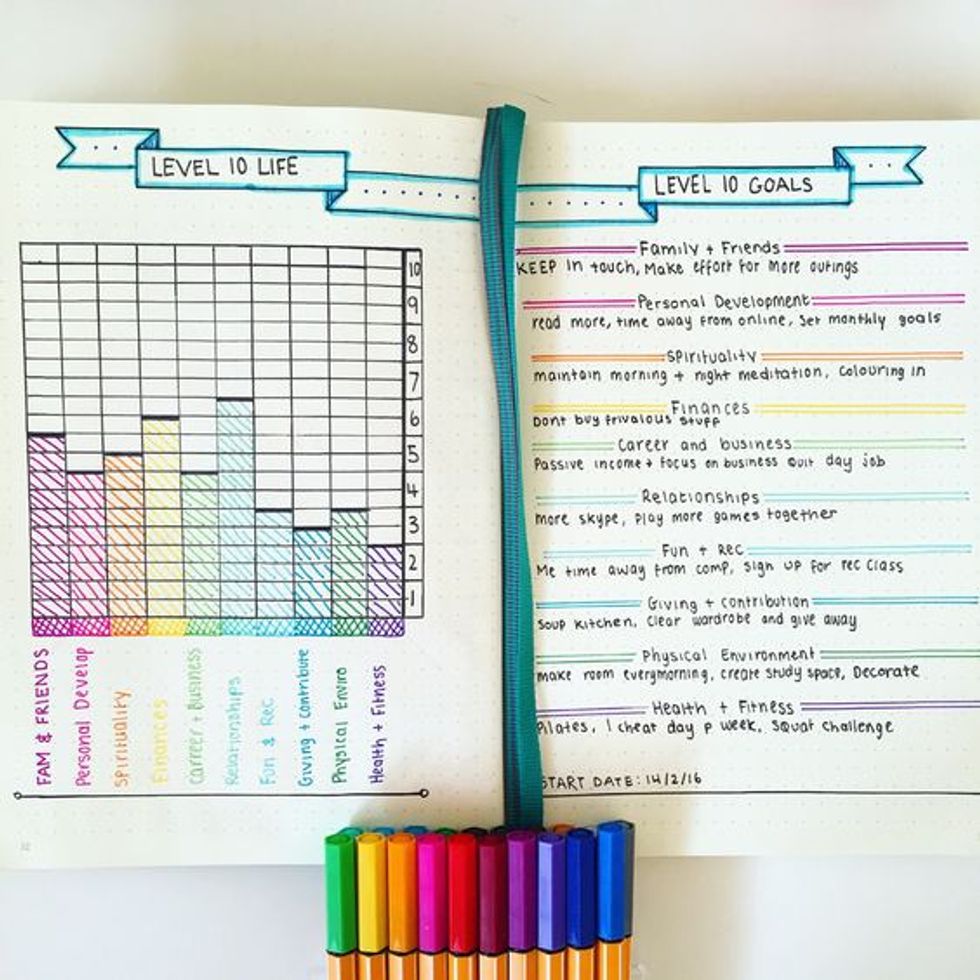 LEVEL 10 LIFE
10
9
8
7
6
5
4
3
2
1
FAM & FRIENDS
Personal Develop
Spirituality
Finances
Carreer + Business
Relationships
Fun & Rec
Giving + contribute
Physical Enviro
Health + Fitness
LEVEL 10 GOALS
Family + Friends
KEEP in touch, Make effort for more outings
Personal Development
read more, time away from online, Set monthly goals
Spirituality
maintain morning + night meditation, Colouring in
Finances
Dont buy frivalous stuff
Career and business
Passive income + focus on business quit day job
Relationships
more skype, play more games together
Fun + Rec
Me time away from comp, sign up for rec class
Giving + contribution
Soup kitchen, Clear wardrobe and give away
Physical Environment
make room everymorning, create study space, Decorate
Health + Fitness
Pilates, 1 cheat day p week, Squat challenge
START DATE: 14/2/16